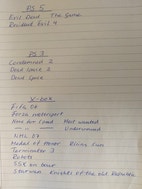 PS 5
Evil Dead The Game
Resident Evil 4
PS 3
Condemned 2
Dead Space 2
Dead Space
X-box
Fifa 06
Forza motorsport
Need for Speed Most wanted
— " — Underground
NHL 06
Medal of Honor Rising Sun
Terminator 3
Robots
SSX on tour
Starwars Knights of the old Republic